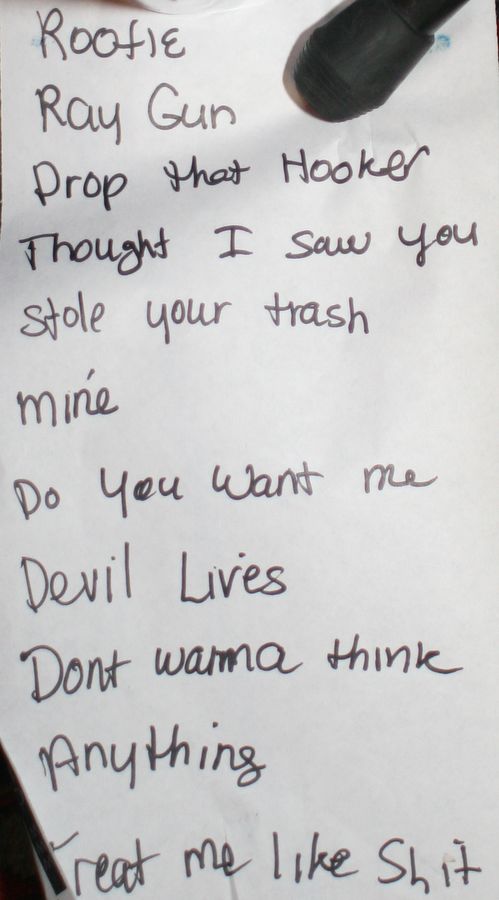 Roofie
Ray Gun
Drop that Hooker
Thought I saw you
stole your trash
mine
Do you want me
Devil Lives
Dont wanna think
Anything
Treat me like Shit